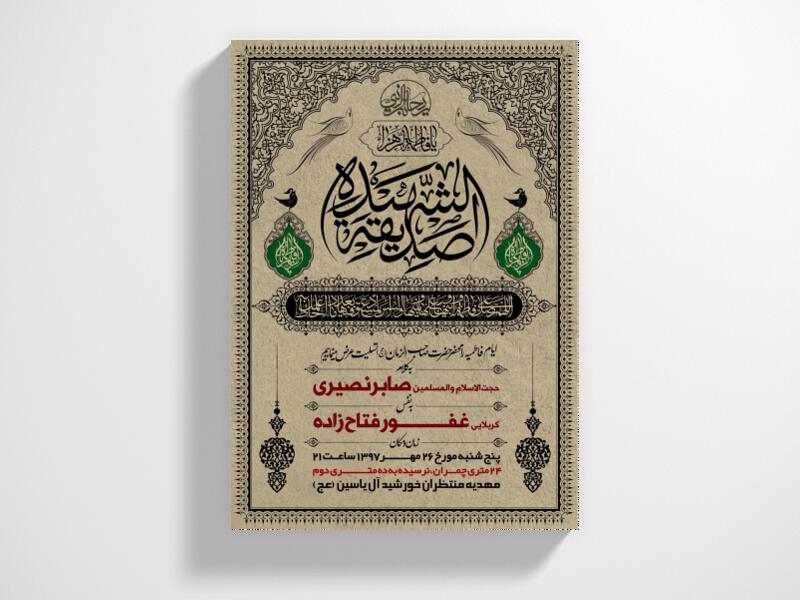 یا فاطمة الزهرا
الصدیقة الشهیدة
ایام فاطمیه را محضر حضرت صاحب الزمان (عج) تسلیت عرض مینماییم
به کلام
حجت الاسلام والمسلمین صابر نصیری
به نفس
کربلایی غفور فتاح زاده
زمان و مکان
پنج شنبه مورخ ۲۶ مهر ۱۳۹۷ ساعت ۲۱
۲۴ متری چمران، نرسیده به ده متری دوم
مهدیه منتظران خورشید آل یاسین (عج)